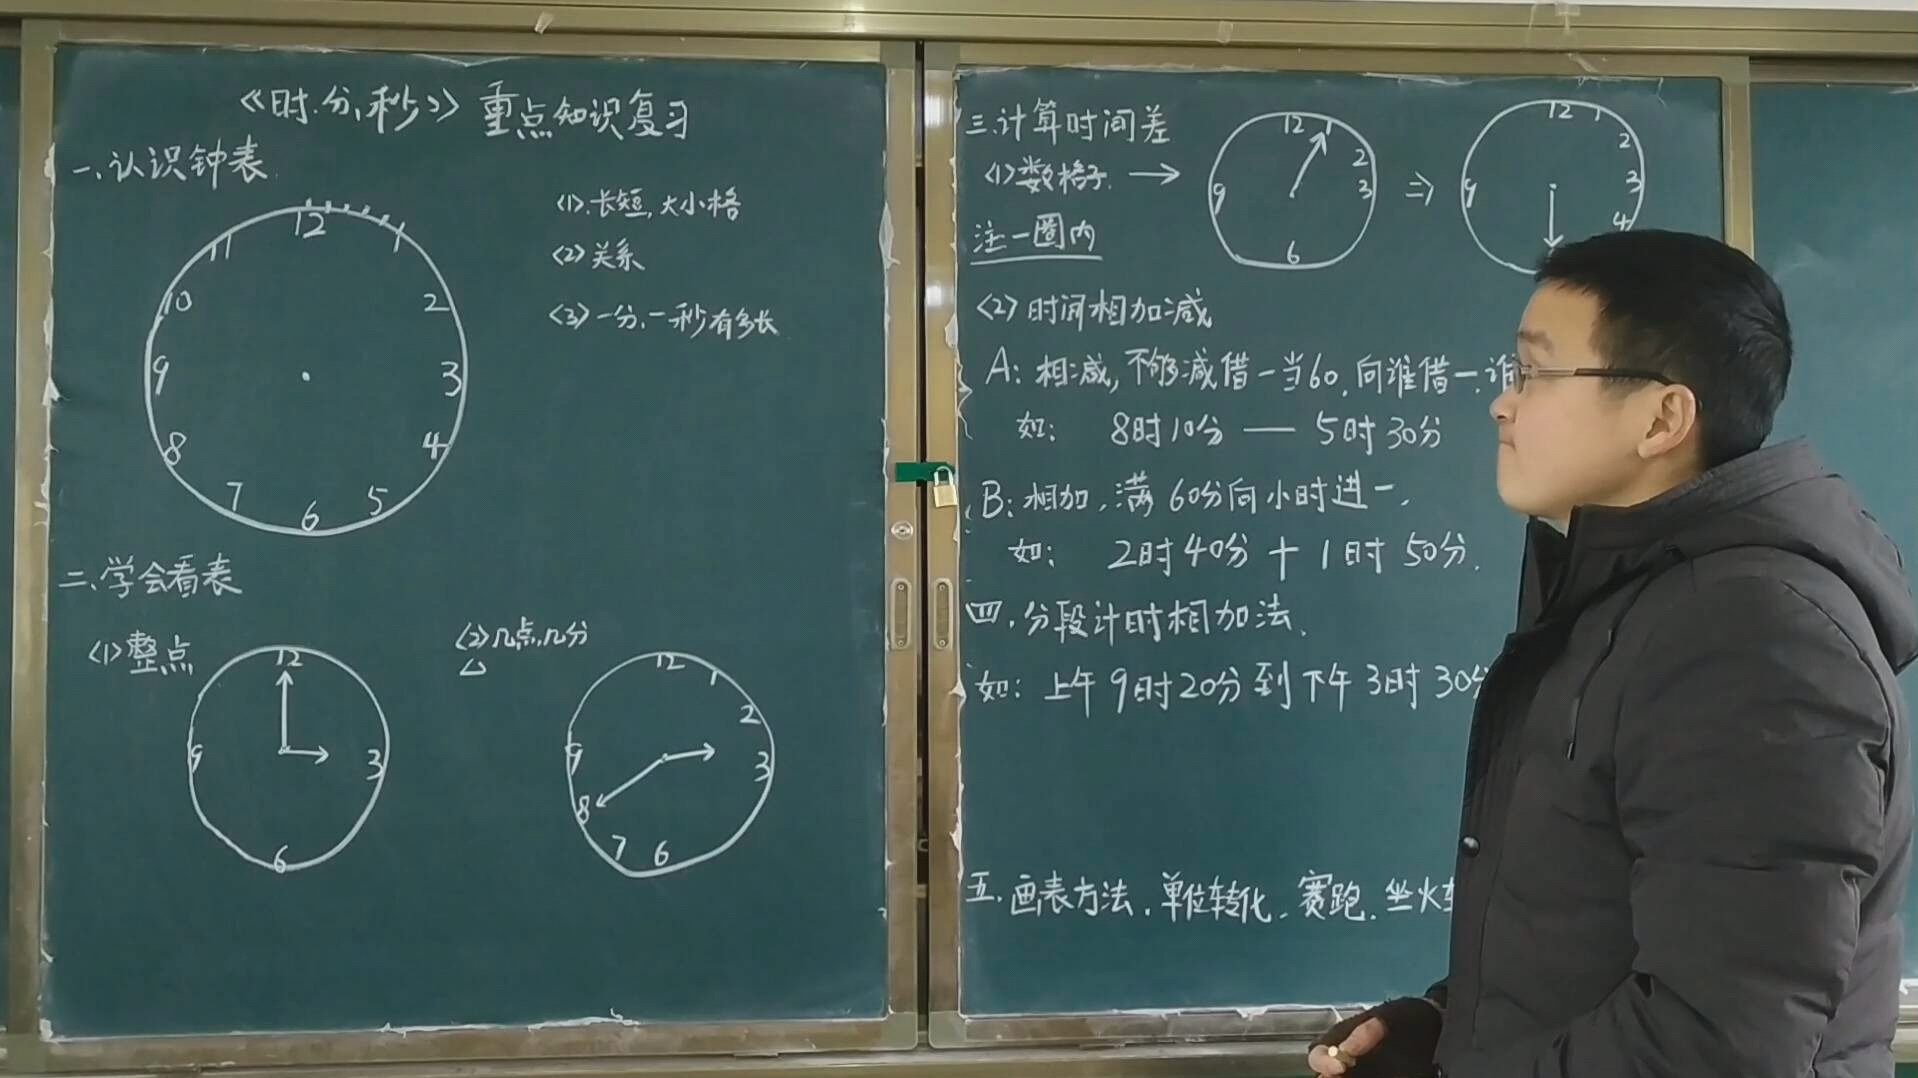 《时、分、秒》重点知识复习
一、认识钟表
<1>.长短,大小格
<2>关系
<3>一分、一秒有多长
12
1
2
3
4
5
6
7
8
9
10
11
二、学会看表
<1>整点
12
3
6
9
<2>几点几分
12
1
2
3
6
7
8
9
三.计算时间差
<1>数格子. →
12
1
2
3
6
9
⇒
12
1
2
3
4
9
注一圈内
<2>时间相加减
A:相减,不够减借一当60.向谁借一.谁
如: 8时10分 — 5时30分
B:相加,满60分向小时进一.
如: 2时40分 + 1时50分.
四.分段计时相加法.
如:上午9时20分到下午3时30分
五.画表方法.单位转化.赛跑.坐火